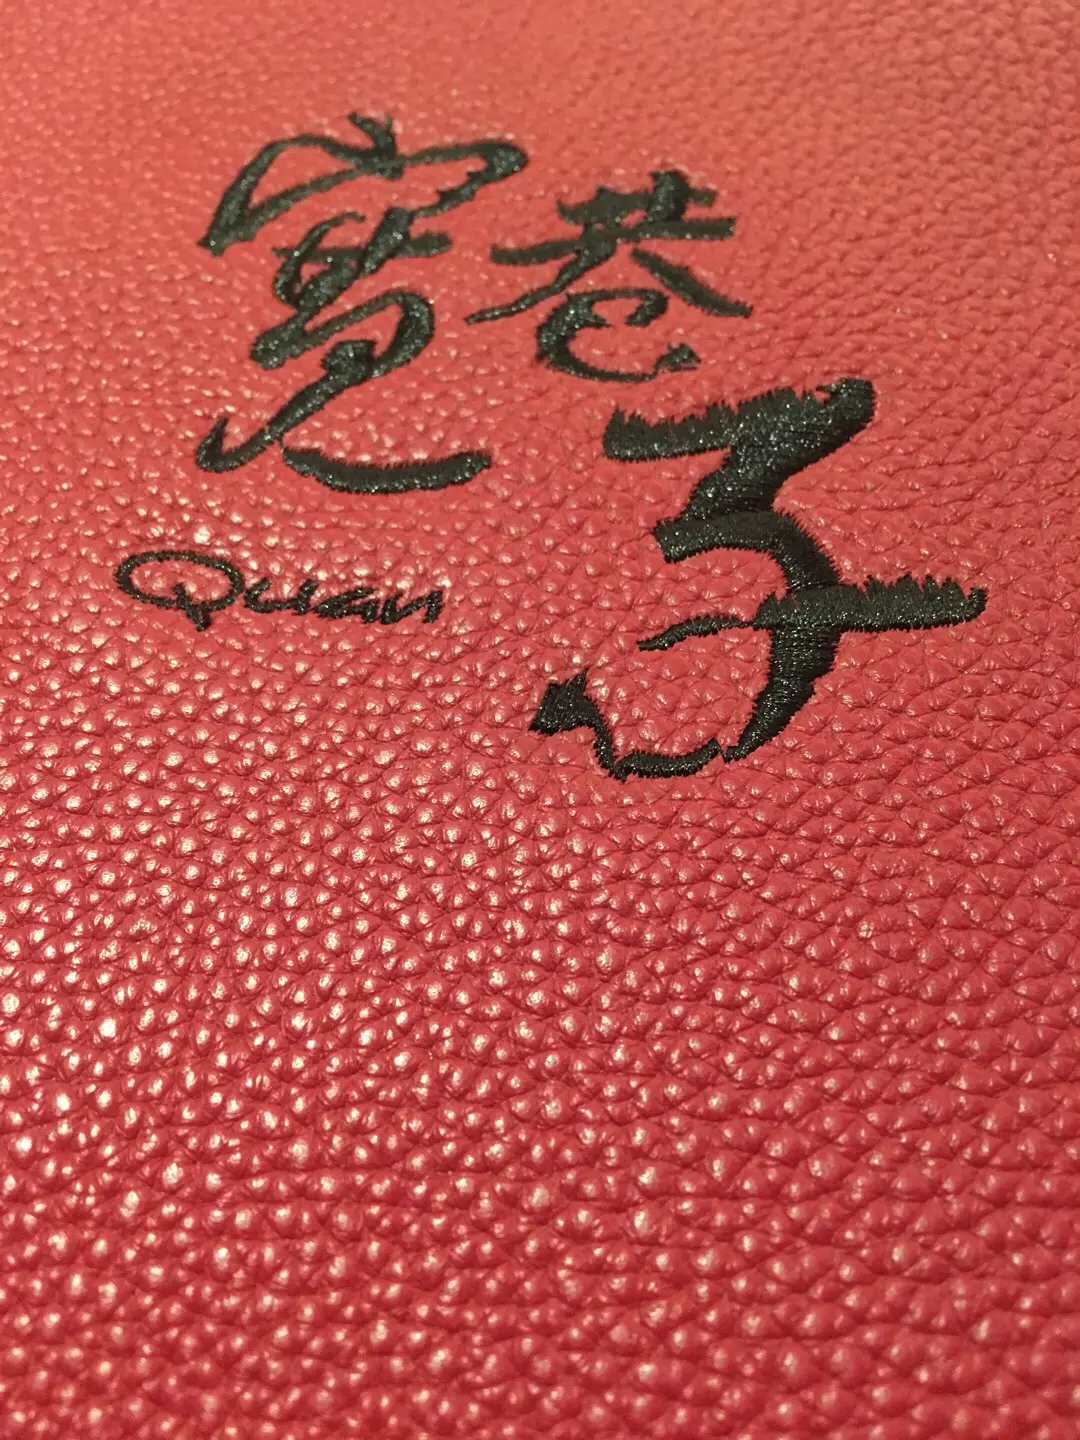 寬巷子
Quan